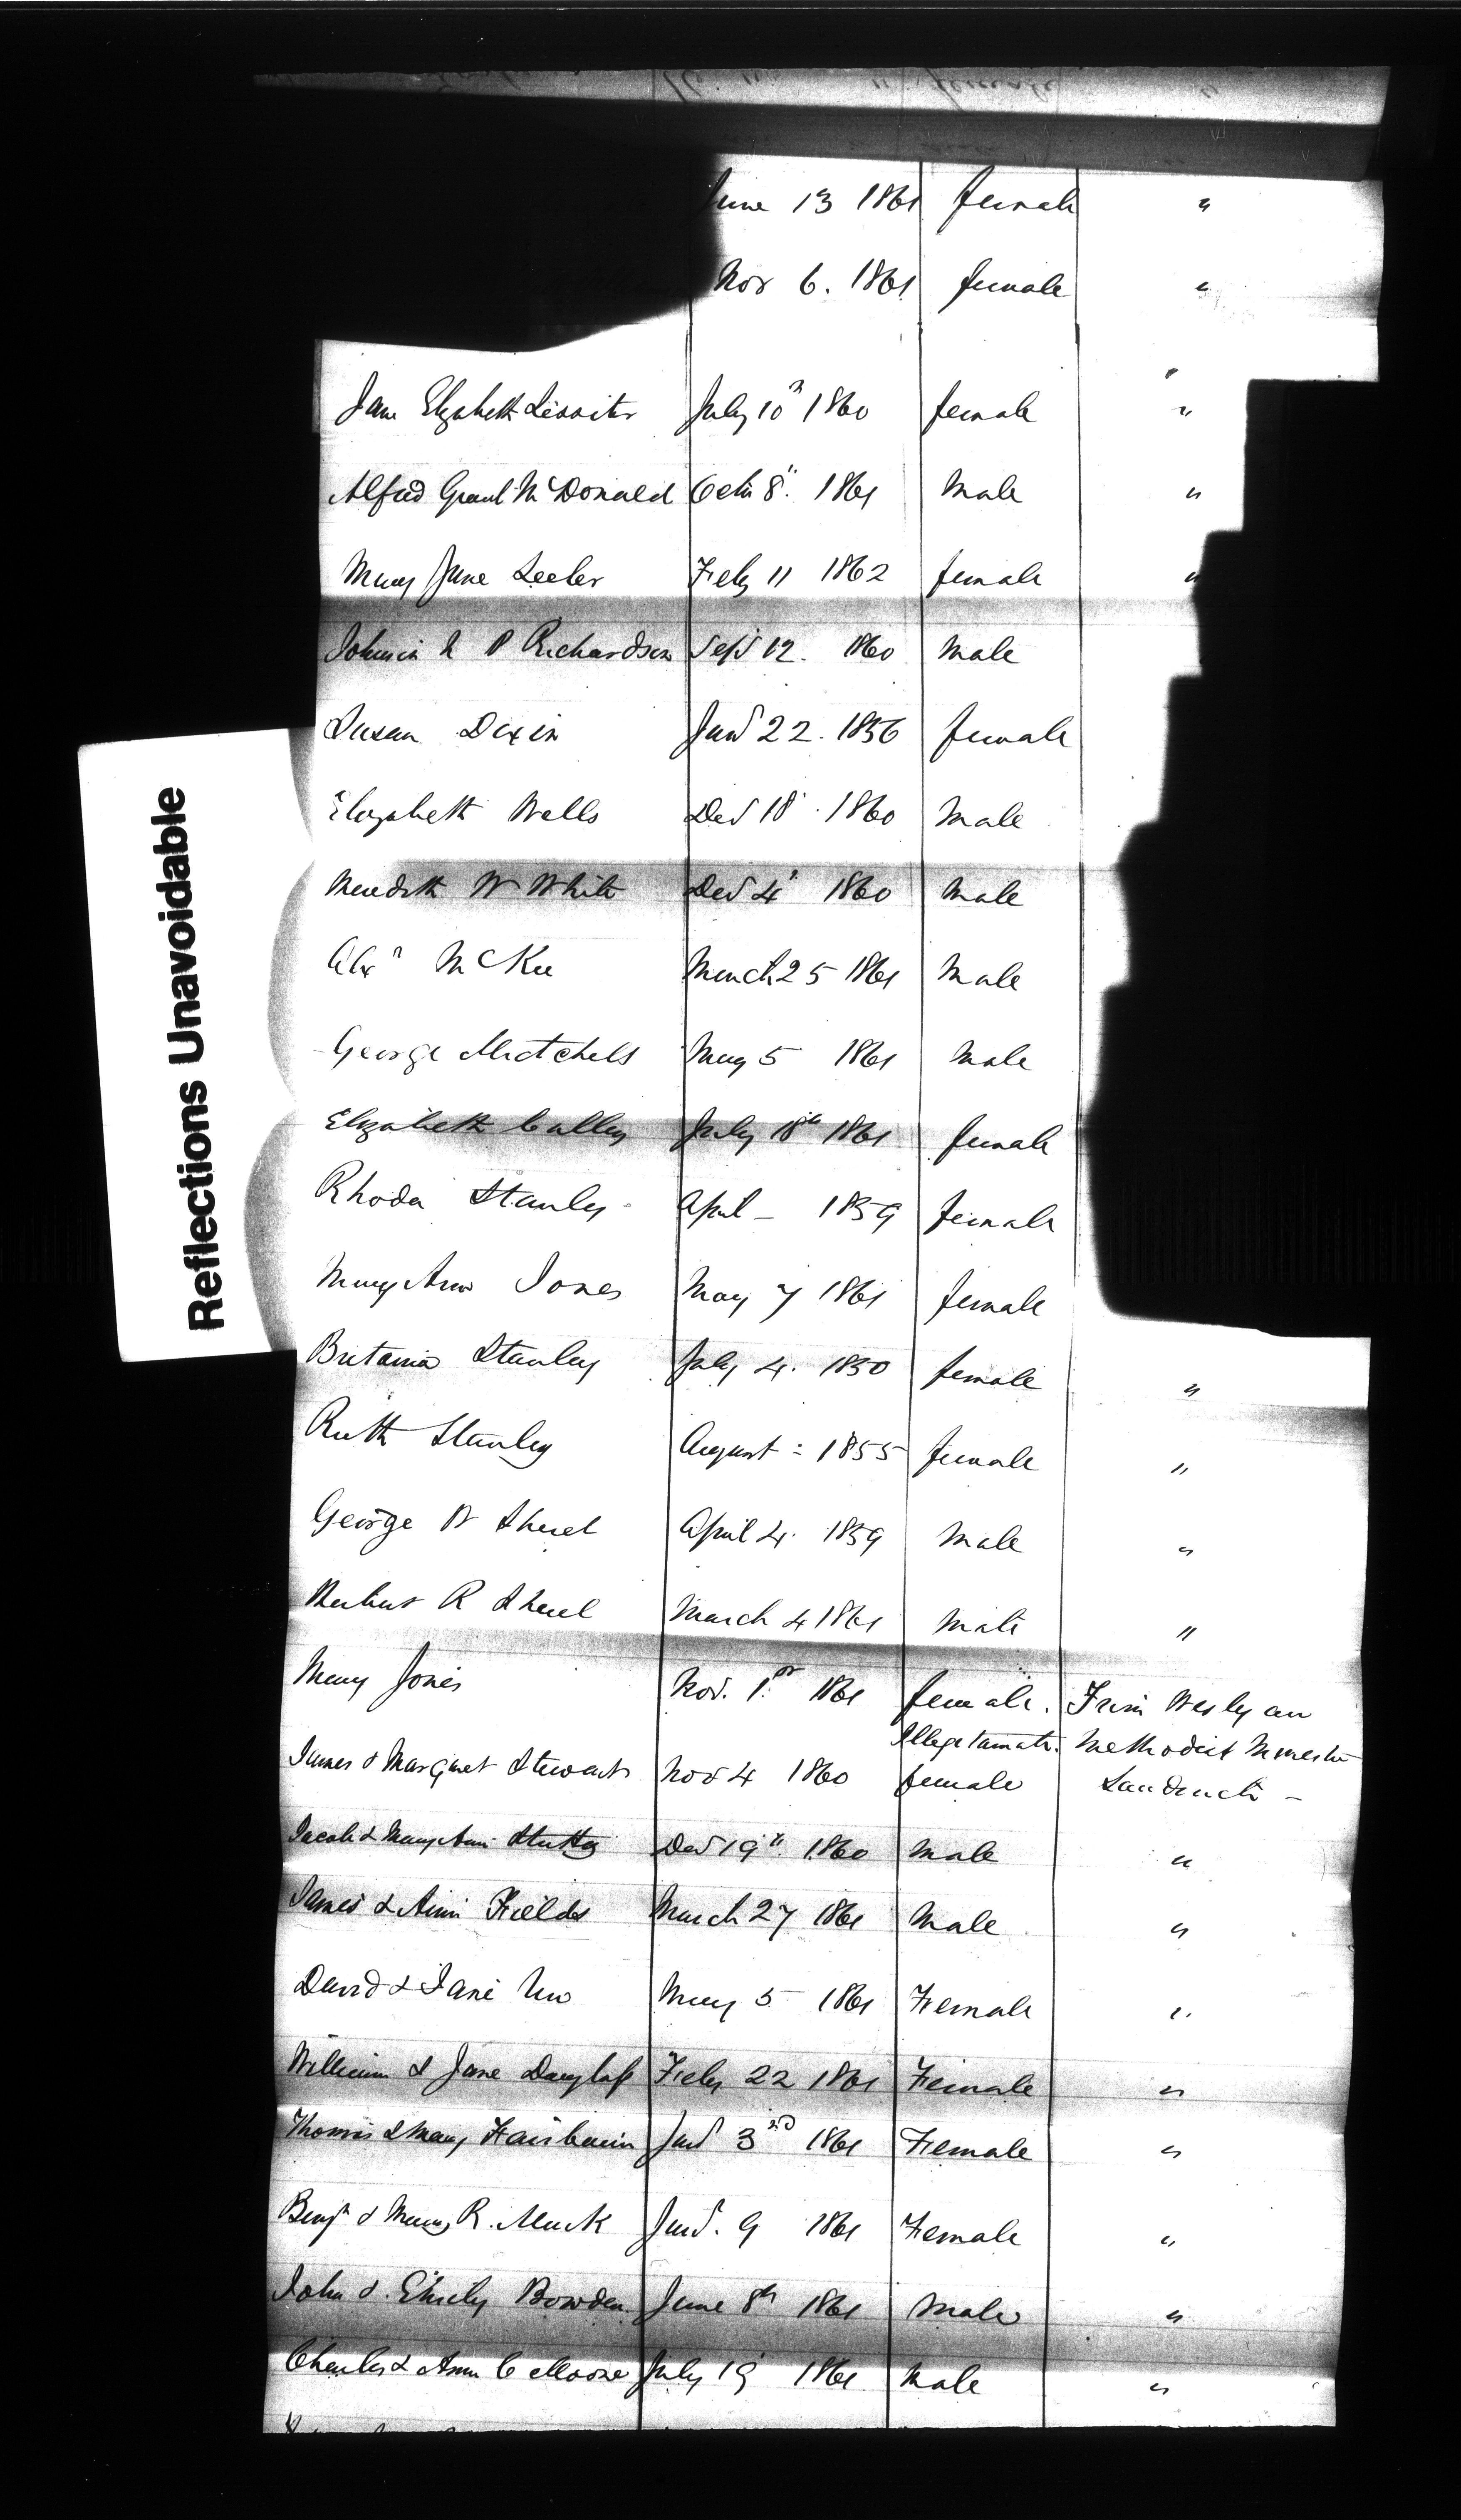 June 13 1861 female "
Nov 6. 1861 female "
Jane Elizabeth Lissiter July 10th 1860 female "
Alfred Grant McDonald Octr 8th 1861 Male "
Mary Jane Leeler Feby 11 1862 female "
Johnson P Richardson Sept 12. 1860 Male
Susan Dixin Jany 22. 1856 female
Elizabeth Wells Decr 18th 1860 Male
Meredith W White Decr 4th 1860 Male
Alexr McKee March 25 1861 Male
George Mitchell May 5 1861 Male
Elizabeth Culley July 18th 1861 female
Reflections Unavoidable
Rhoda Stanley April – 1859 female
Mary Ann Jones May 7 1861 female
Britania Stanley July 4. 1850 female "
Ruth Stanley August : 1855 female "
George W April 4. 1859 Male "
R March 4 1861 Male "
Mary Jones Nov. 1st 1861 female. From Wesleyan
Illegetamate. Methodist Minester
James & Margaret Stewart Nov 4 1860 female –
Jacob & Mary Ann Decr 19th 1860 Male "
James & Ann Fields March 27 1861 Male "
David & Jane May 5 1861 Female "
William & Jane Douglass Feby 22 1861 Female "
Thomas & Mary Fairbairn Jany 3rd 1861 Female "
Benjn & Mary R. Jany. 9 1861 Female "
John & Emily Bowden June 8th 1861 Male "
Charles & Ann C Moore July 19 1861 Male "